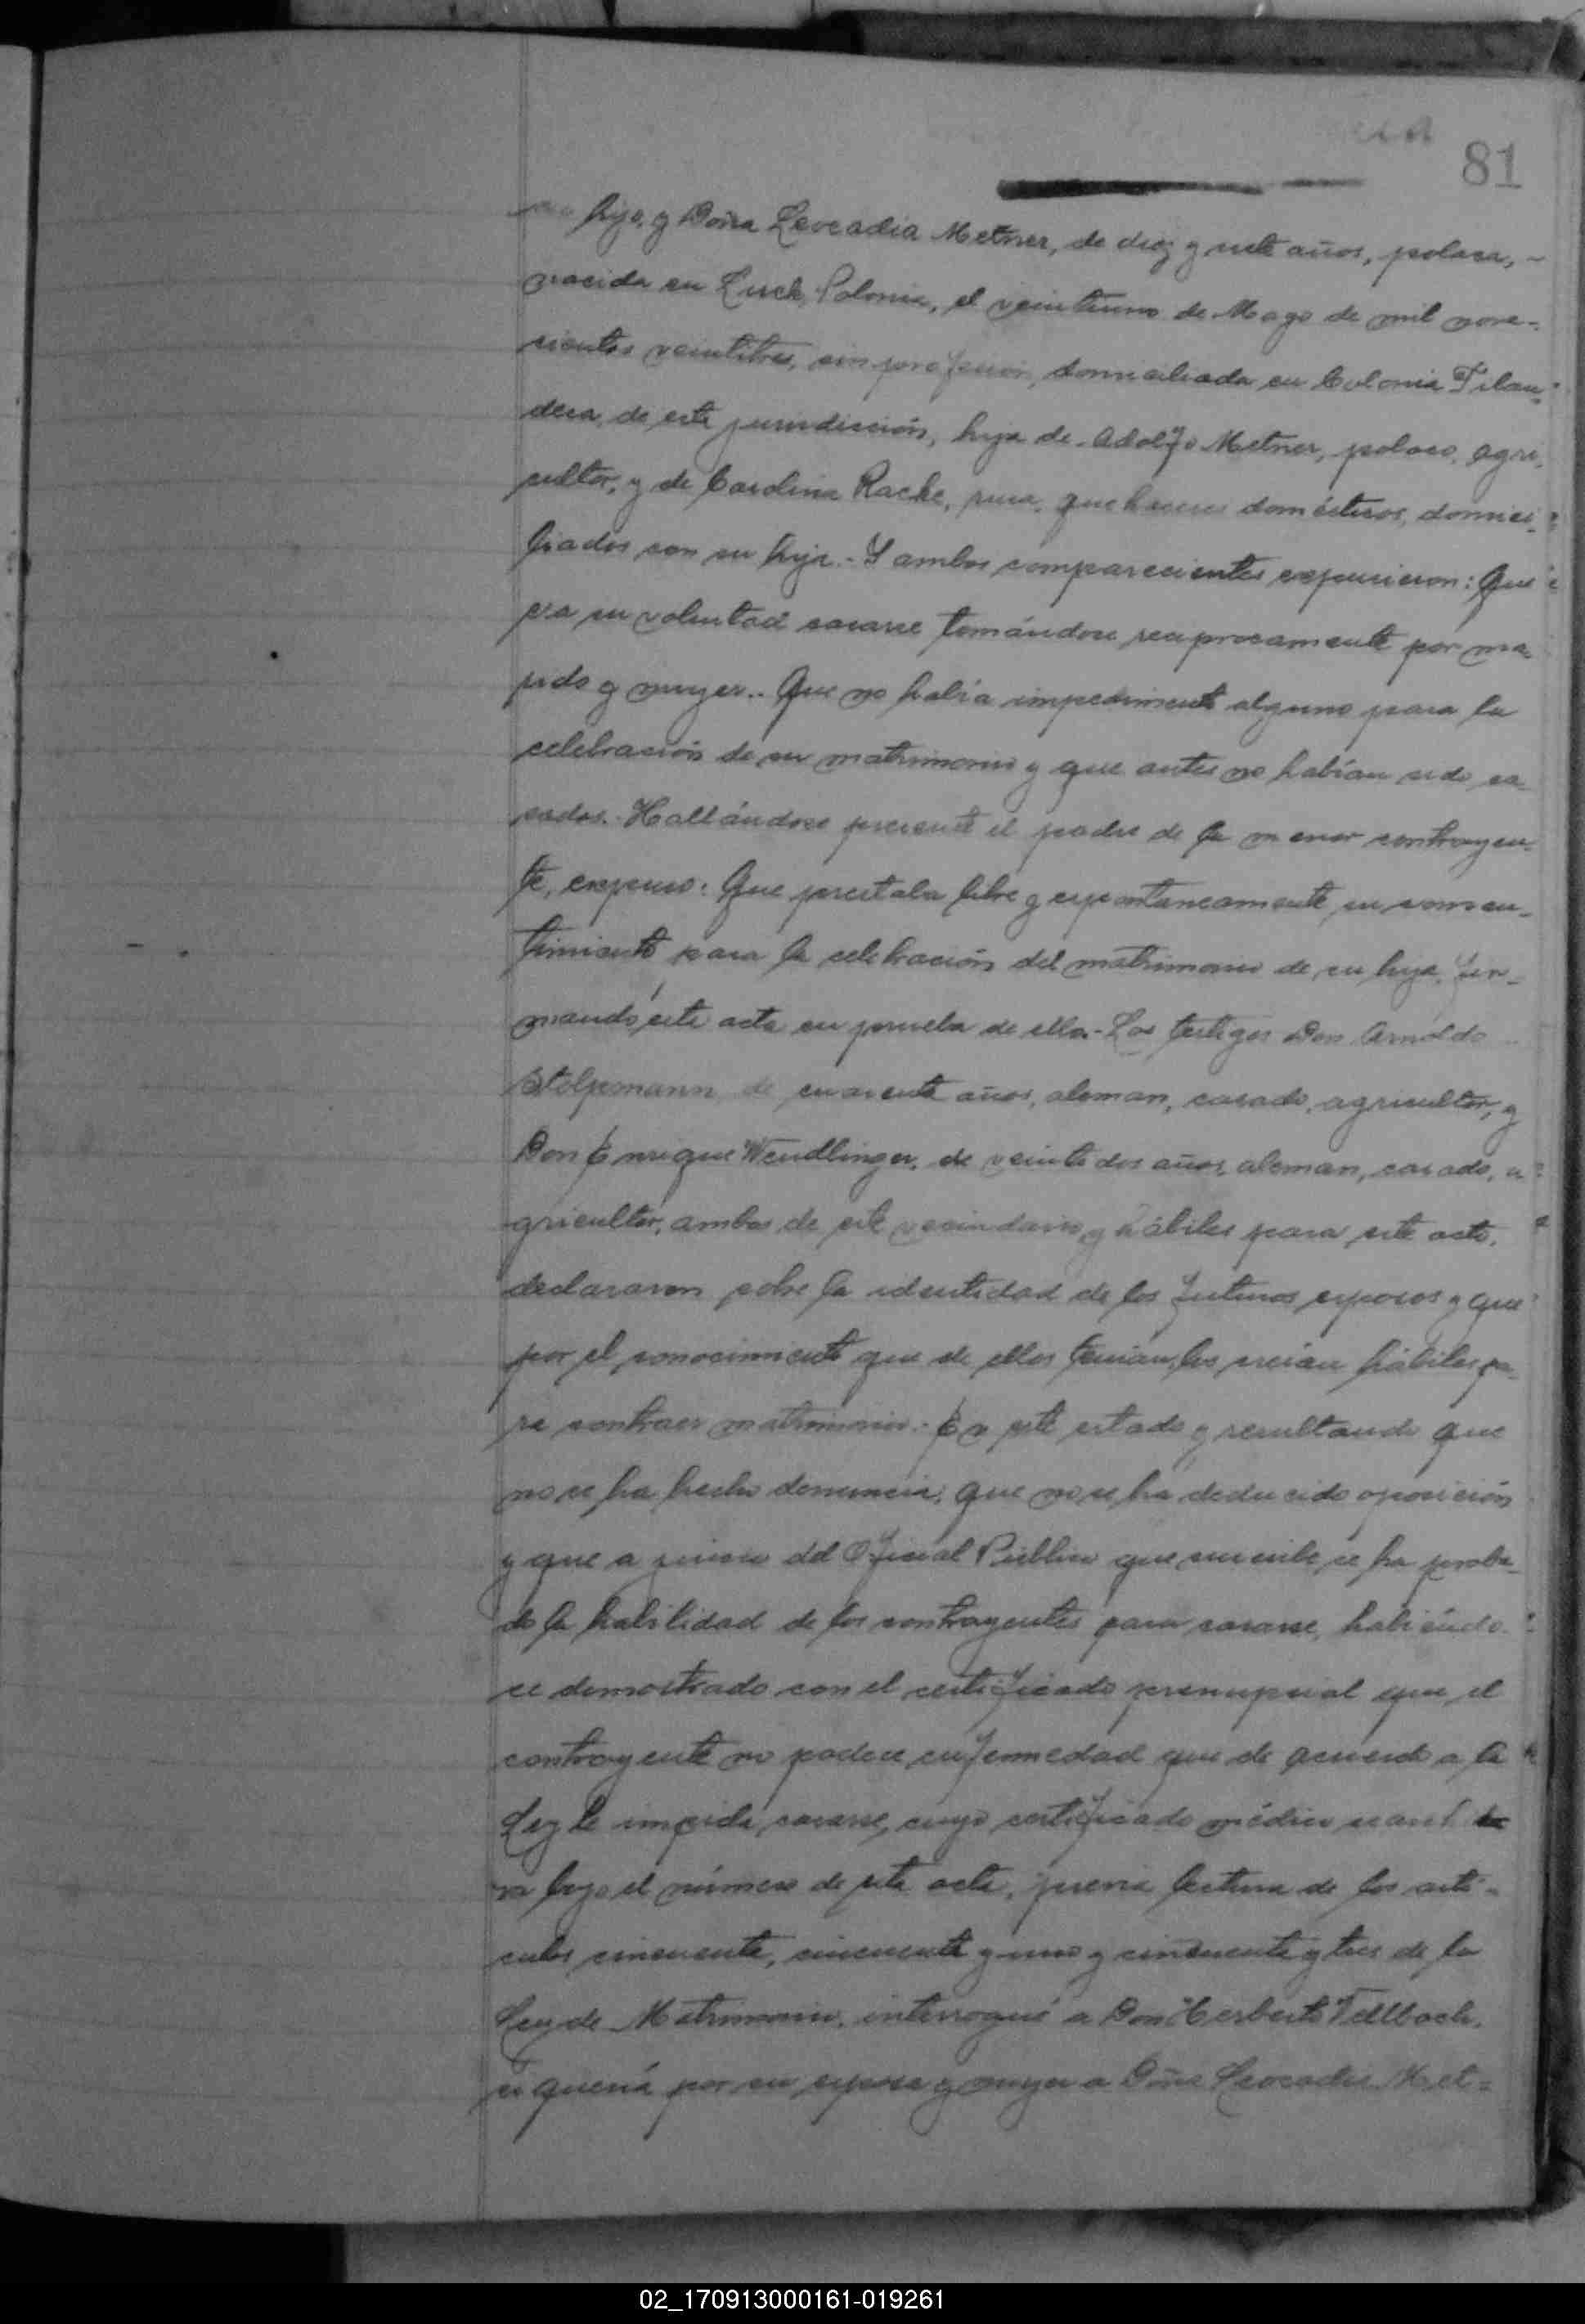 81
hijo, y Doña Leocadia Metner, de diez y siete años, polaca,
nacida en Luck, Polonia, el veintiuno de Mayo de mil nove-
cientos veintitres, sin profesión, domiciliada en Colonia
de esta jurisdicción, hija de Adolfo Metner, polaco, agri-
cultor, y de Carolina Racke, rusa, quehaceres domésticos, domici-
liados con su hija.- Y ambos comparecientes expusieron: Que
era su voluntad casarse tomándose reciprocamente por ma-
rido y mujer.. Que no había impedimento alguno para la
celebración de su matrimonio y que antes no habían sido ca-
sados.- Hallándose presente el padre de la menor contrayen-
te, expuso: Que prestaba libre y espontaneamente su consen-
timiento para la celebración del matrimonio de su hija, fir-
mando esta acta en prueba de ello.- Los testigos Don Arnoldo
Stolpmann de cuarenta años, aleman, casado, agricultor, y
Don Enrique Wendlinger, de veinte dos años, aleman, casado, a-
gricultor, ambos de este vecindario y hábiles para este acto,
declararon sobre la identidad de los futuros esposos y que
por el conocimiento que de ellos tenían, los creían hábiles pa-
ra contraer matrimonio.- En este estado y resultando que
no se ha hecho denuncia, que no se ha deducido oposición
y que a juicio del Oficial Público que suscribe se ha proba-
do la habilidad de los contrayentes para casarse, habiéndo-
se demostrado con el certificado prenupcial que el
contrayente no padece enfermedad que de acuerdo a la
Ley le impida casarse, cuyo certificado médico
bajo el número de esta acta, previa lectura de los artí-
culos cincuenta, cincuenta y uno y cincuenta y tres de la
Ley de Matrimonio, interrogué a Don Herberto Fellbach,
si quería por su esposa y mujer a Doña Leocadia Met-
02_170913000161-019261